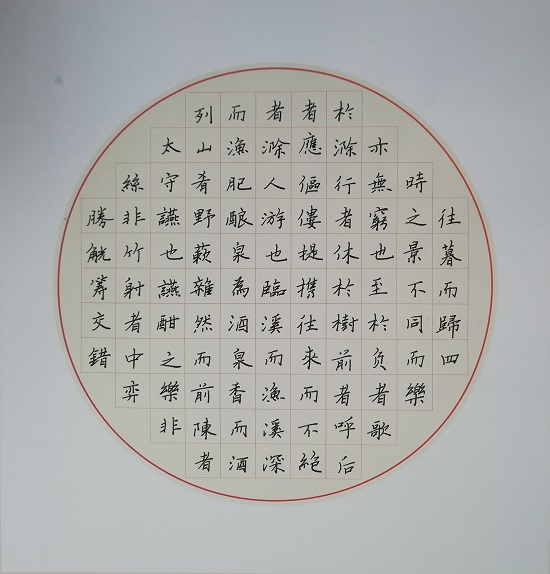 往暮而歸四
時之景不同而樂
亦無窮也至於负者歌
於滁行者休於樹前者呼后
者應傴僂提擕往來而不絕
者滁人游也臨溪而漁溪深
而漁肥酿泉為酒泉香而酒
列山肴野蔌雜然而前陳者
太守讌也讌酣之樂非
絲非竹射者中弈
勝觥籌交錯